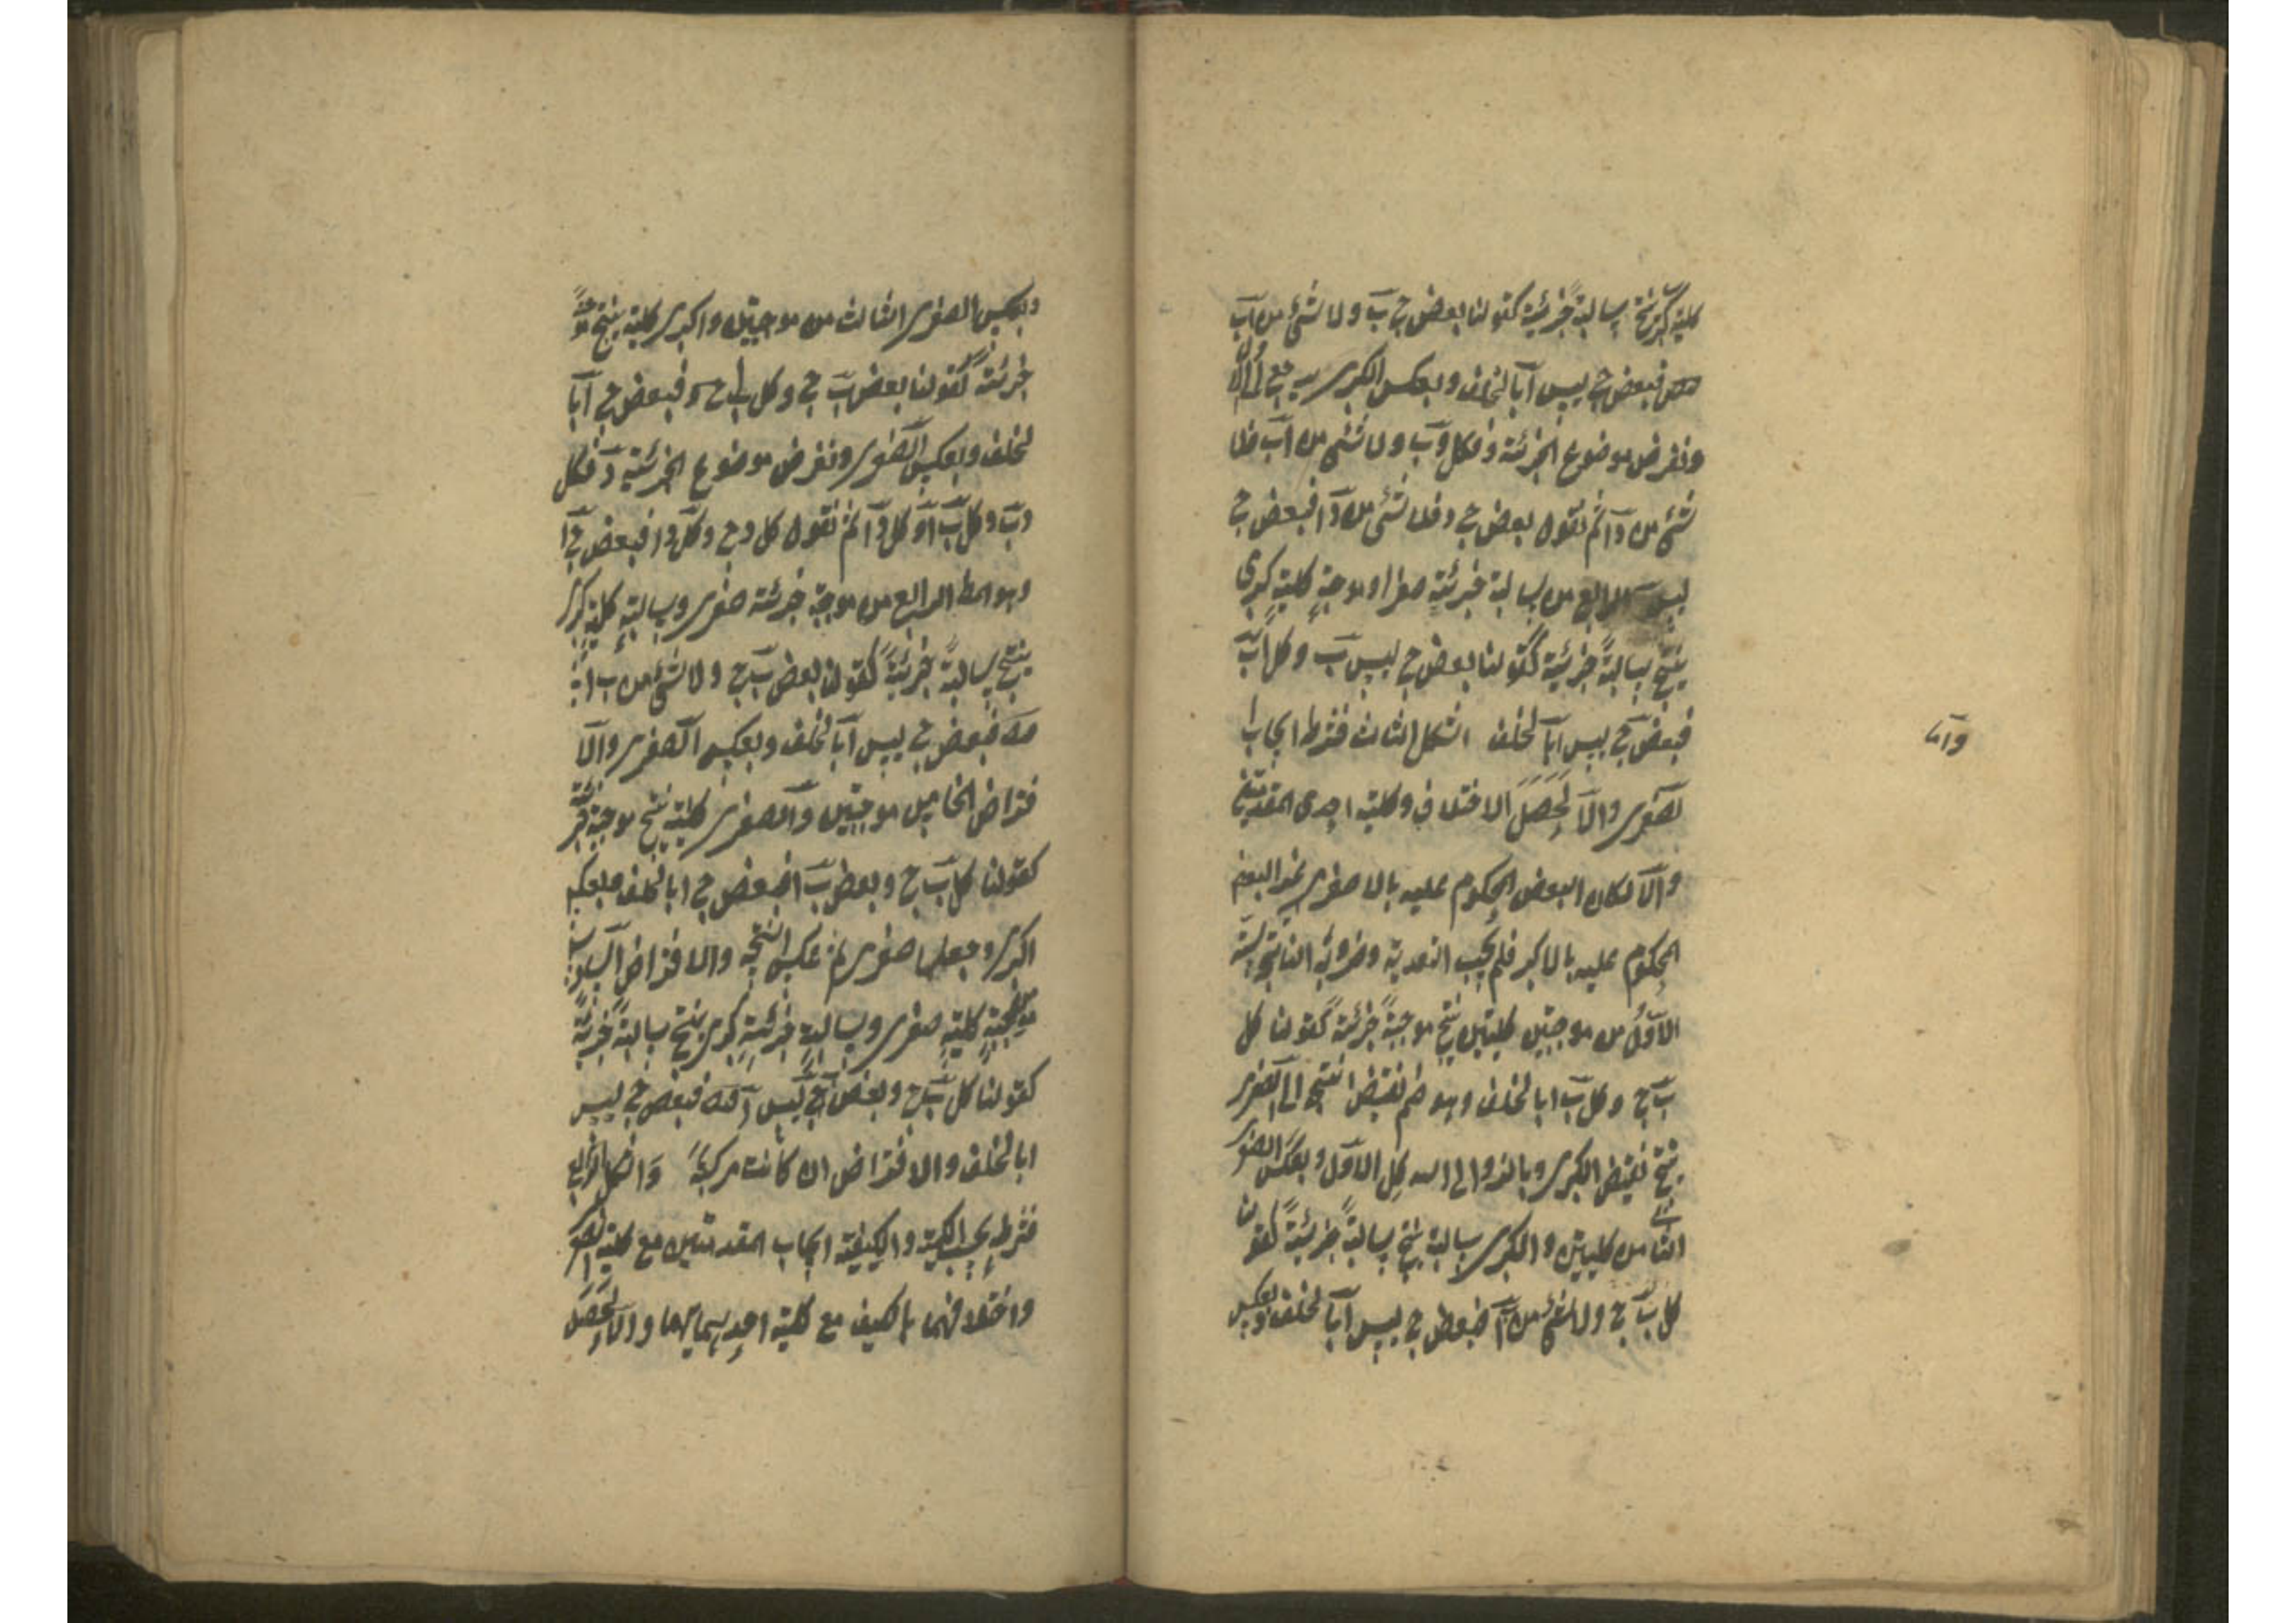 كلية كبرى ينتج سالبة جزئية كقولنا بعض ج ب ولا شئ من اب
فبعض ج ليس آبا لخلف وبعكس الكبرى ليرجع الى الاول
ونفرض موضوع الجزئية د فكل د ب ولا شئ من اب فلا
شئ من د آ ثم نقول بعض ج د فلا شئ من د آ فبعض ج
ليس الرابع من سالبة جزئية صغرا وموجبة كلية كبرى
ينتج سالبة جزئية كقولنا بعض ج ليس ب وكل اب
فبعض ج ليس آبا لخلف الشكل الثالث فشرط ايجاب ا
وآما
لصغرى والا لحصل الاختلاف وكلية احدى المقدمتين
والا لكان البعض المحكوم عليه بالاصغر غير البعض
المحكوم عليه بالاكبر فلم يجب التعدية وضروبه الناتجة ستة
الاول من موجبتين كليتين ينتج موجبة جزئية كقولنا كل
ب ج وكل ب ابا لخلف وهو ضم نقيض النتيجة الى الصغرى
ينتج نقيض الكبرى وبالرد الى الشكل الاول وبعكس الصغرى
الثانى من كليتين والكبرى سالبة ينتج سالبة جزئية كقولنا
كل ب ج ولا شئ من ب آ فبعض ج ليس آبا لخلف وبعكس
وبعكس الصغرى الثالث من موجبتين والكبرى كلية ينتج موجبة
جزئية كقولنا بعض ب ج وكل ب ا فبعض ج آبا
لخلف وبعكس الصغرى ونفرض موضوع الجزئية د فكل
د ب وكل ب ا فكل د آ ثم نقول كل د ج وكل د ا فبعض ج ا
وهو المط الرابع من موجبة جزئية صغرى وسالبة كلية كبرى
ينتج سالبة جزئية كقولنا بعض ب ج ولا شئ من ب ا
فبعض ج ليس آبا لخلف وبعكس الصغرى والا
فتراض الخامس موجبتين والصغرى كلية ينتج موجبة جزئية
كقولنا كل ب ج وبعض ب ا فبعض ج ابا لخلف وبعكس
الكبرى وجعلها صغرى ثم عكس النتيجة والافتراض السادس من
موجبة كلية صغرى وسالبة جزئية كبرى ينتج سالبة جزئية
كقولنا كل ب ج وبعض ليس ا فبعض ج ليس
ابا لخلف والافتراض ان كانت مركبة واما الشكل الرابع
فشرطه بحسب الكمية والكيفية ايجاب المقدمتين مع كلية الصغرى
واختلافهما بالكيف مع كلية احديهما والا لحصل